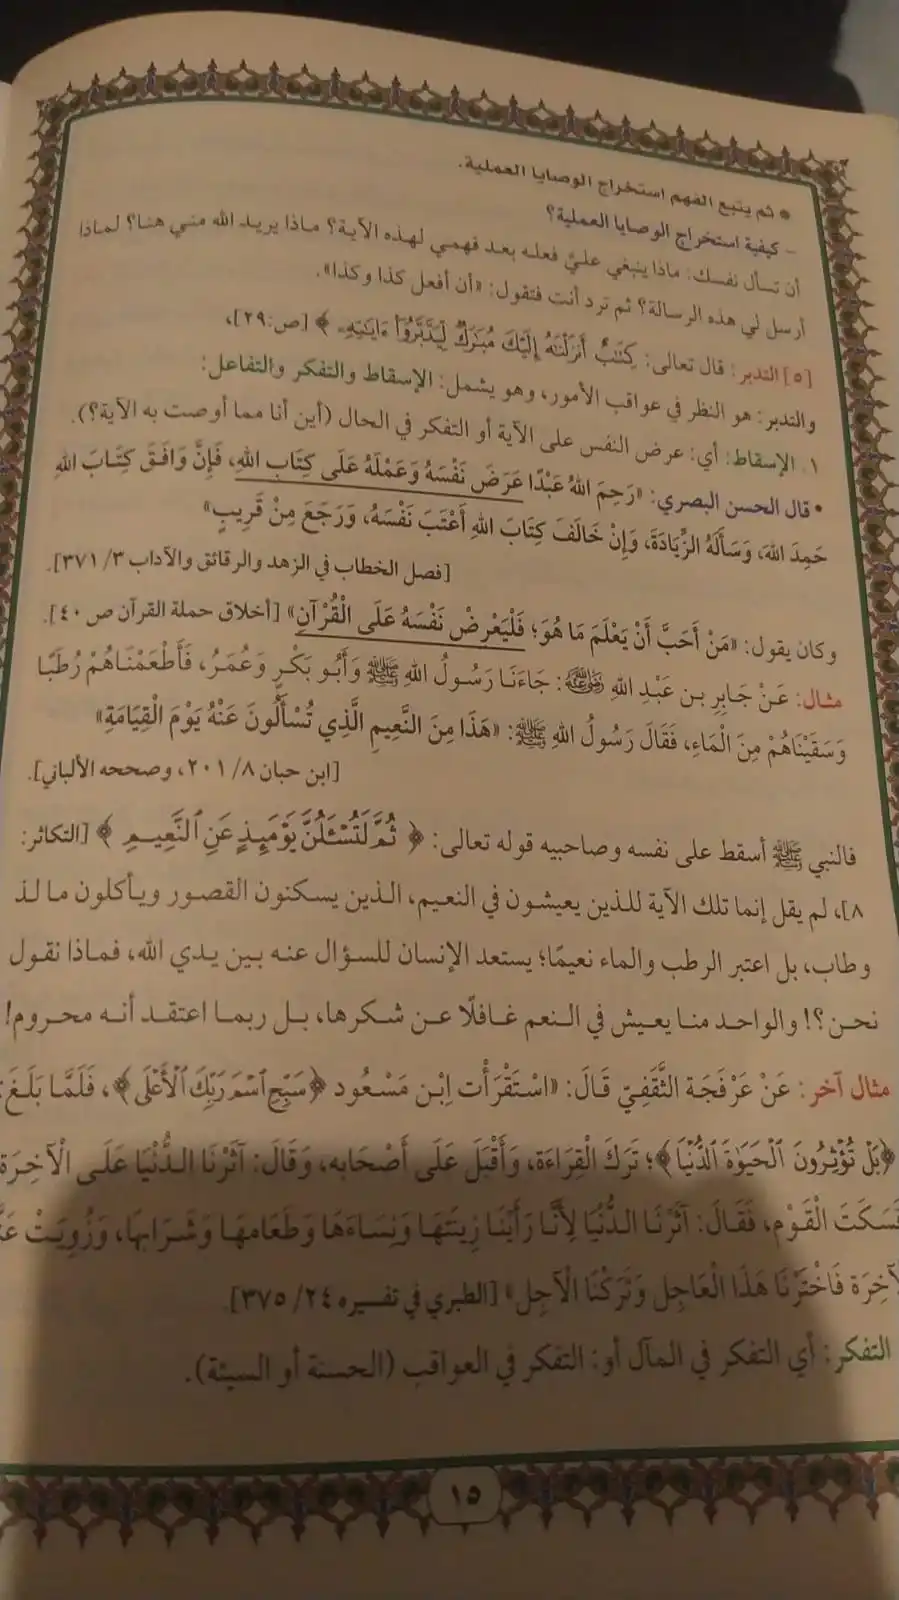 * ثم يتبع الفهم استخراج الوصايا العملية.
- كيفية استخراج الوصايا العملية؟
أن تسأل نفسك: ماذا ينبغي عليَّ فعله بعد فهمي لهذه الآية؟ ماذا يريد الله مني هنا؟ لماذا
أرسل لي هذه الرسالة؟ ثم ترد أنت فتقول: «أن أفعل كذا وكذا».
[٥] التدبر: قال تعالى: كِتَٰبٌ أَنزَلْنَٰهُ إِلَيْكَ مُبَٰرَكٌ لِّيَدَّبَّرُوٓا۟ ءَايَٰتِهِۦ ﴾ [ص:٢٩]،
والتدبر: هو النظر في عواقب الأمور، وهو يشمل: الإسقاط والتفكر والتفاعل:
١. الإسقاط: أي: عرض النفس على الآية أو التفكر في الحال (أين أنا مما أوصت به الآية؟).
• قال الحسن البصري: «رَحِمَ اللهُ عَبْدًا عَرَضَ نَفْسَهُ وَعَمَلَهُ عَلَى كِتَابِ اللهِ، فَإِنْ وَافَقَ كِتَابَ اللهِ
حَمِدَ اللهَ، وَسَأَلَهُ الزِّيَادَةَ، وَإِنْ خَالَفَ كِتَابَ اللهِ أَعْتَبَ نَفْسَهُ، وَرَجَعَ مِنْ قَرِيبٍ»
[فصل الخطاب في الزهد والرقائق والآداب ٣/ ٣٧١].
وكان يقول: «مَنْ أَحَبَّ أَنْ يَعْلَمَ مَا هُوَ؛ فَلْيَعْرِضْ نَفْسَهُ عَلَى الْقُرْآنِ» [أخلاق حملة القرآن ص ٤٠].
مثال: عَنْ جَابِرِ بن عَبْدِ اللهِ ﵁: جَاءَنَا رَسُولُ اللهِ ﷺ وَأَبُو بَكْرٍ وَعُمَرُ، فَأَطْعَمْنَاهُمْ رُطَبًا
وَسَقَيْنَاهُمْ مِنَ الْمَاءِ، فَقَالَ رَسُولُ اللهِ ﷺ: «هَذَا مِنَ النَّعِيمِ الَّذِي تُسْأَلُونَ عَنْهُ يَوْمَ الْقِيَامَةِ»
[ابن حبان ٨/ ٢٠١، وصححه الألباني].
فالنبي ﷺ أسقط على نفسه وصاحبيه قوله تعالى: ﴿ ثُمَّ لَتُسْـَٔلُنَّ يَوْمَئِذٍ عَنِ ٱلنَّعِيمِ ﴾ [التكاثر:
٨]، لم يقل إنما تلك الآية للذين يعيشون في النعيم، الذين يسكنون القصور ويأكلون ما لذ
وطاب، بل اعتبر الرطب والماء نعيمًا؛ يستعد الإنسان للسؤال عنه بين يدي الله، فماذا نقول
نحن؟! والواحد منا يعيش في النعم غافلًا عن شكرها، بل ربما اعتقد أنه محروم!
مثال آخر: عَنْ عَرْفَجَة الثَّقَفِيّ قَالَ: «اسْتَقْرَأْت اِبْن مَسْعُود ﴿سَبِّحِ ٱسْمَ رَبِّكَ ٱلْأَعْلَى﴾، فَلَمَّا بَلَغَ:
﴿بَلْ تُؤْثِرُونَ ٱلْحَيَوٰةَ ٱلدُّنْيَا﴾؛ تَرَكَ الْقِرَاءَة، وَأَقْبَلَ عَلَى أَصْحَابه، وَقَالَ: آثَرْنَا الدُّنْيَا عَلَى الْآخِرَة
فَسَكَتَ الْقَوْم، فَقَالَ: آثَرْنَا الدُّنْيَا لِأَنَّا رَأَيْنَا زِينَتهَا وَنِسَاءَهَا وَطَعَامهَا وَشَرَابهَا، وَزُوِيَتْ
الْآخِرَة فَاخْتَرْنَا هَذَا الْعَاجِل وَتَرَكْنَا الْآجِل» [الطبري في تفسيره ٢٤/ ٣٧٥].
التفكر: أي التفكر في المآل أو: التفكر في العواقب (الحسنة أو السيئة).
١٥